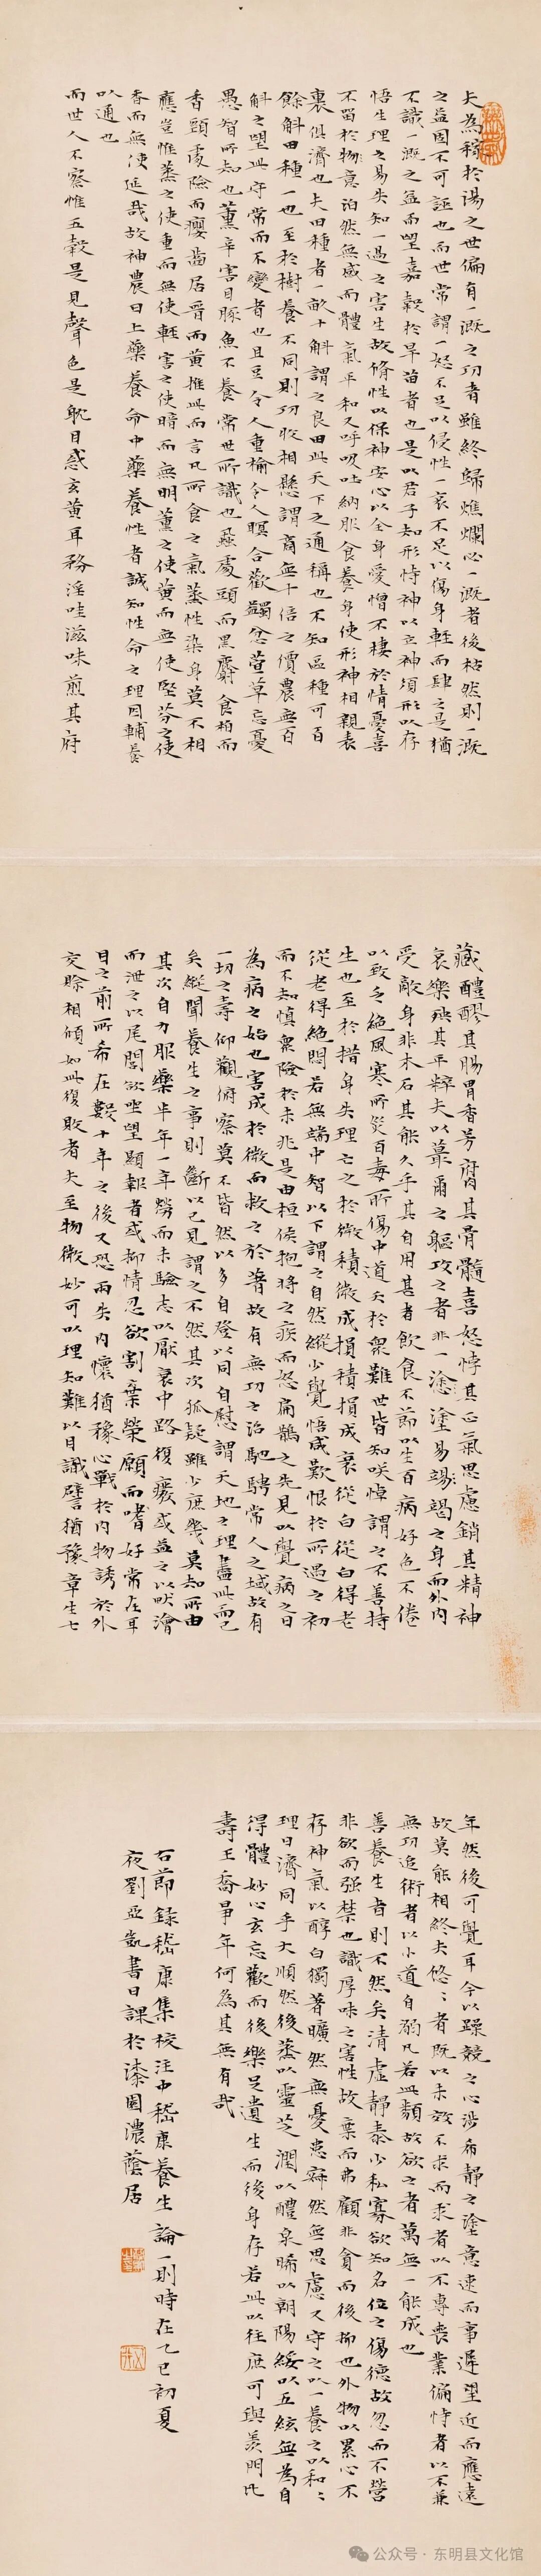 夫為稼於湯之世偏有一溉之功者雖終歸燋爛必一溉者後枯然則一溉
之益固不可誣也而世常謂一怒不足以侵性一哀不足以傷身輕而肆之是猶
不識一溉之益而望嘉穀於旱苗者也是以君子知形恃神以立神須形以存
悟生理之易失知一過之害生故脩性以保神安心以全身愛憎不棲於情憂喜
不留於物意泊然無感而體氣平和又呼吸吐納服食養身使形神相親表
裏俱濟也夫田種者一畝十斛謂之良田此天下之通稱也不知區種可百
餘斛田種一也至於樹養不同則功收相懸謂商無十倍之價農無百
斛之望此守常而不變者也且豆令人重榆令人瞑合歡蠲忿萱草忘憂
愚智所知也薰辛害目豚魚不養常世所識也蝨處頭而黑麝食柏而
香頸處險而癭齒居晉而黃推此而言凡所食之氣蒸性染身莫不相
應豈惟蒸之使重而無使輕害之使暗而無明薰之使黃而無使堅芬之使
香而無使延哉故神農曰上藥養命中藥養性者誠知性命之理因輔養
以通也
而世人不察惟五穀是見聲色是耽目惑玄黃耳務淫哇滋味煎其府
藏醴醪其腸胃香芳腐其骨髓喜怒悖其正氣思慮銷其精神
哀樂殃其平粹夫以蕞爾之軀攻之者非一塗易竭之身而外內
受敵身非木石其能久乎其自用甚者飲食不節以生百病好色不倦
以致乏絕風寒所災百毒所傷中道夭於衆難世皆知咲悼謂之不善持
生也至於措身失理亡之於微積微成損積損成衰從衰得白從白得老
從老得終悶若無端中智以下謂之自然縱少覺悟咸歎恨於所遇之初
而不知慎衆險於未兆是由桓侯抱將之疾而怒扁鵲之先見以覺病之日
為病之始也害成於微而救之於著故有無功之治馳騁常人之域故有
一切之壽仰觀俯察莫不皆然以多自證以同自慰謂天地之理盡此而已
矣縱聞養生之事則斷以己見謂之不然其次狐疑雖少庶幾莫知所由
其次自力服藥半年一年勞而未驗志以厭衰中路復廢或益之以畎澮
而泄之以尾閭欲坐望顯報者或抑情忍欲割棄榮願而嗜好常在耳
目之前所希在數十年之後又恐兩失內懷猶豫心戰於內物誘於外
交賒相傾如此復敗者夫至物微妙可以理知難以目識譬猶豫章生七
年然後可覺耳今以躁競之心涉希靜之塗意速而事遲望近而應遠
故莫能相終夫悠:者既以未效不求而求者以不專喪業偏恃者以不兼
無功追術者以小道自溺凡若此類故欲之者萬無一能成也
善養生者則不然矣清虛靜泰少私寡欲知名位之傷德故忽而不營
非欲而强禁也識厚味之害性故棄而弗顧非貪而後抑也外物以累心不
存神氣以醇白獨著曠然無憂患寂然無思慮又守之以一養之以和:
理日濟同乎大順然後蒸以靈芝潤以醴泉晞以朝陽綏以五絃無為自
得體妙心玄忘歡而後樂足遺生而後身存若此以往庶可與羨門比
壽王喬爭年何為其無有哉
右節錄嵇康集校注中嵇康養生論一則時在乙巳初夏
夜劉亞凱書日課於漆園濃蔭居
公众号·东明县文化馆